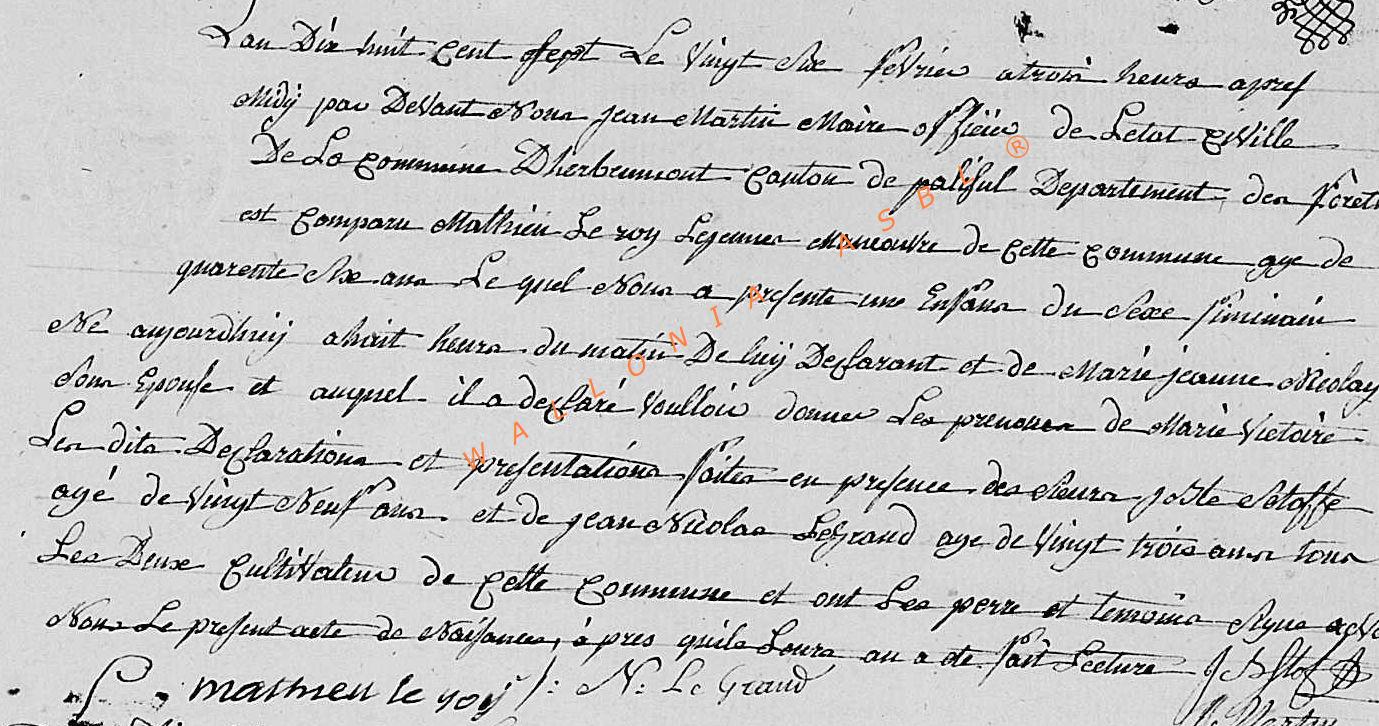 Lan Dix huit Cent Sept Le Vingt Six fevrier a trois heures apres
Midy par Devant Nous Jean Martin Maire officier de Letat Civille
De La Commune Dherbeumont Canton de paliseul Departement des foret
est Comparu Mathieu Le roy Lejeune Maneouvre de Cette Commune age de
quarente Six ans Le quel Nous a presente une Enfans du Sexe fiminain
Né aujourdhuy ahuit heures du matin De luy Desclarant et de Marie jeanne Nicolay
Sons Epouse et auquel il a desclaré voulloir donner Les prenoms de Marie Victoire
Les dits Desclarations et presentations faites en presence des Sieurs
agé de Vingt Neuf ans et de jean Nicolas Legrand age de Vingt trois ans tous
Les Deux Cultivateur de Cette Commune et ont Les perre et temoins Signe avec
Nous Le present acte de Naissances, apres quils Leurs au a ete fait Lecture
mathieu le roy N: Le Grand
Martin
WALLONIA ASBL ®